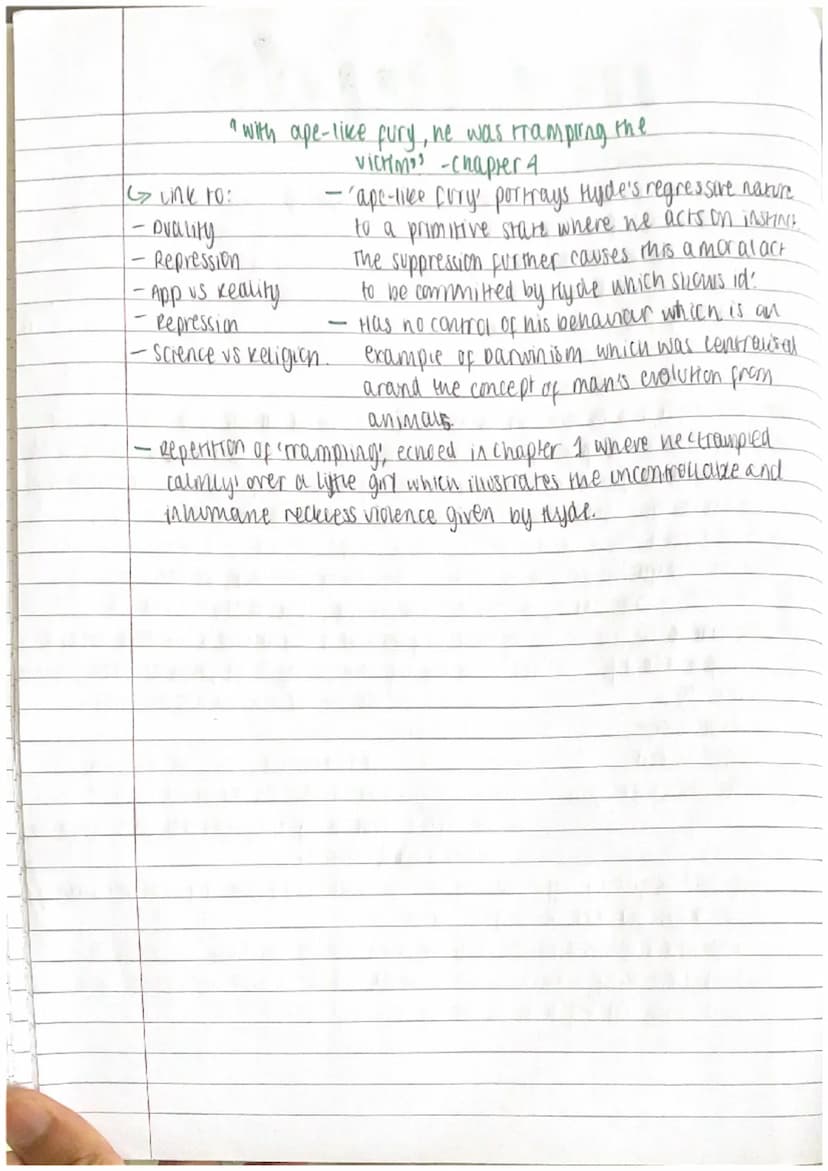 "With ape-like fury, he was trampling the
victim" - Chapter 4
↳ Link to:
- Duality
- Repression
- App vs Reality
- Repression
- Science vs Religion.
- 'ape-like fury' portrays Hyde's regressive nature
to a primitive state where he acts on instinct.
The suppression further causes this amoral act
to be committed by Hyde which shows id.
- Has no control of his behaviour which is an
example of Darwinism which was centralised
around the concept of man's evolution from
animals.
- Repetition of 'trampling', echoed in Chapter 1 where he 'trampled
calmly' over a little girl which illustrates the uncontrollable and
inhumane reckless violence given by Hyde.